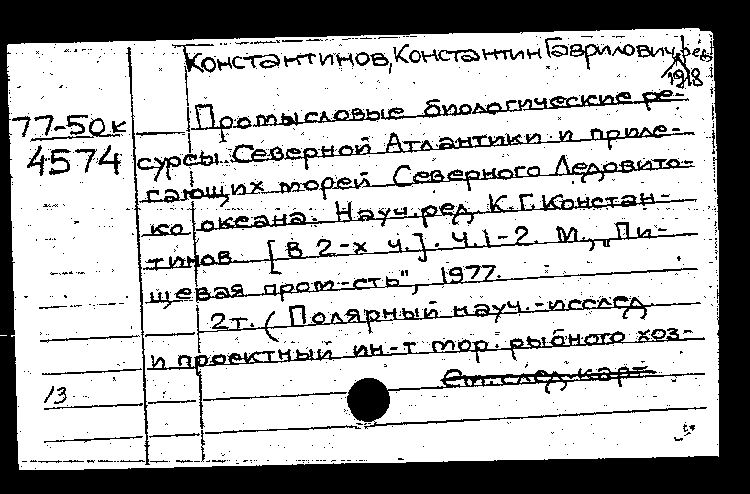 Константинов, Константин Гаврилович, ред.
1918
77-50к
4574
Промысловые биологические ре-
сурсы Северной Атлантики и приле-
гающих морей Северного Ледовито-
ко океана. Науч. ред. К. Г. Констан-
тинов. [В 2-х ч.]. Ч. 1-2. М., "Пи-
щевая пром-сть", 1977.
2т. (Полярный науч.-исслед.
и проектный ин-т мор. рыбного хоз-
См. след. карт.
13